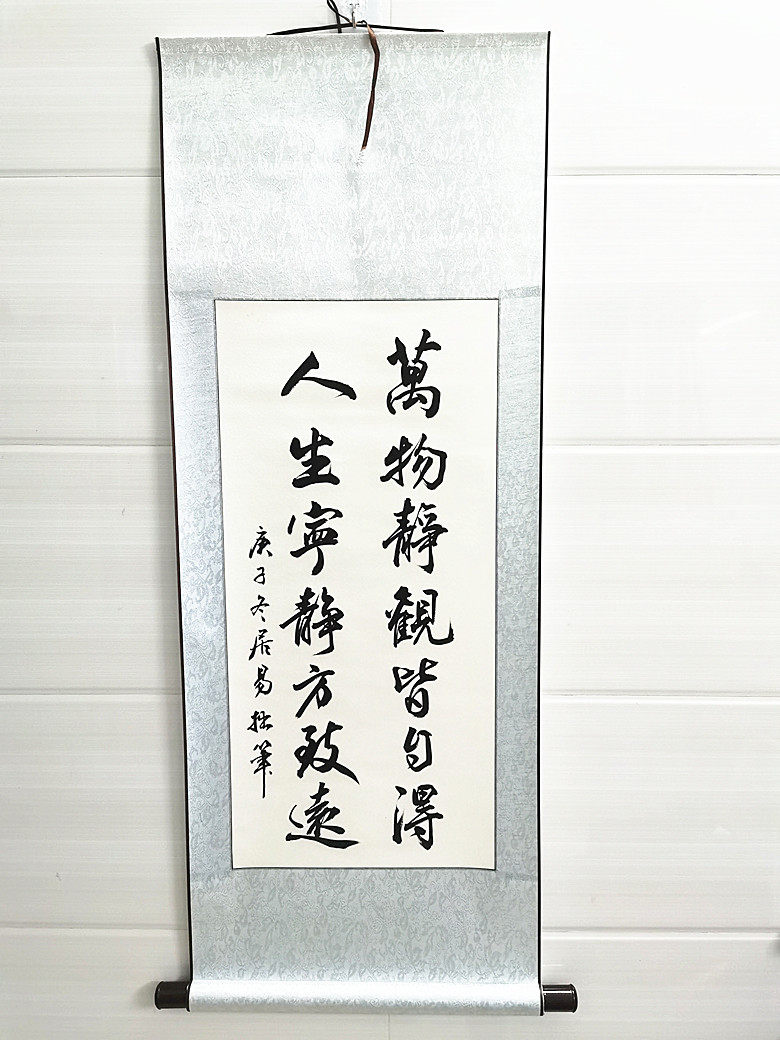 萬物靜觀皆自得
人生寧静方致遠
庚子冬居易拙筆